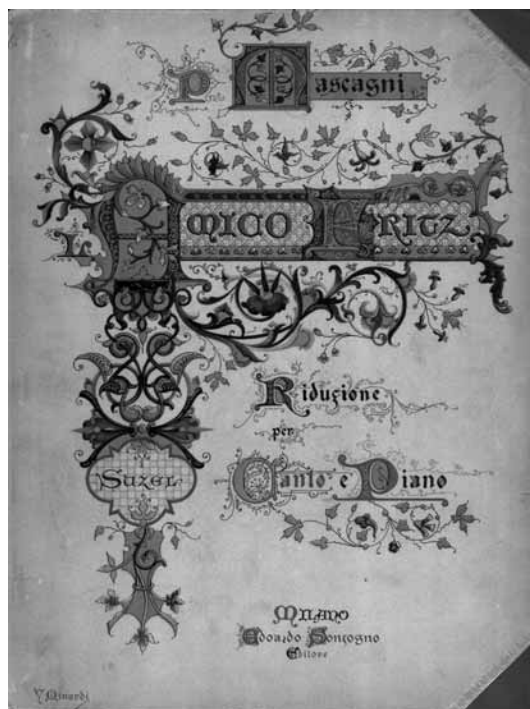 P. Mascagni
L'AMICO FRITZ
Riduzione
per
Canto e Piano
SUZEL
MILANO
Edoardo Sonzogno
Editore